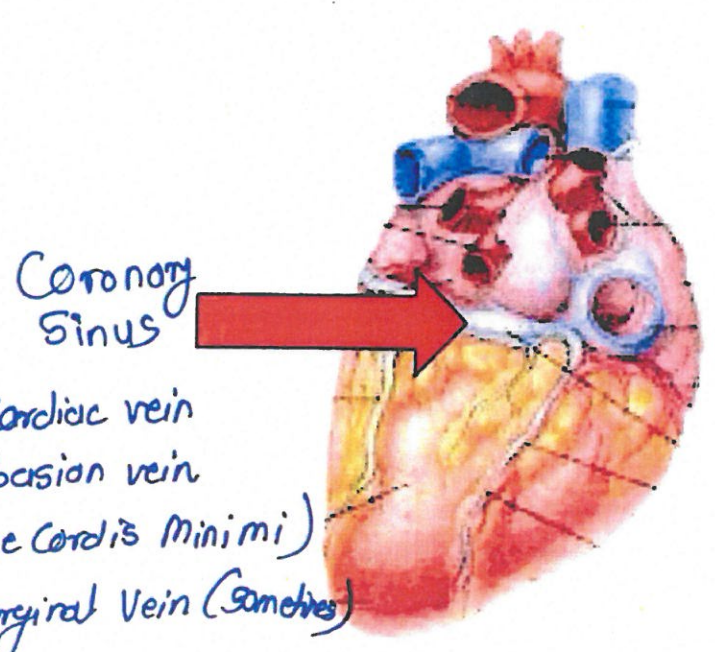 Coronary
Sinus
cardiac vein
besian vein
e Cordis Minimi)
rginal Vein (Sometimes)